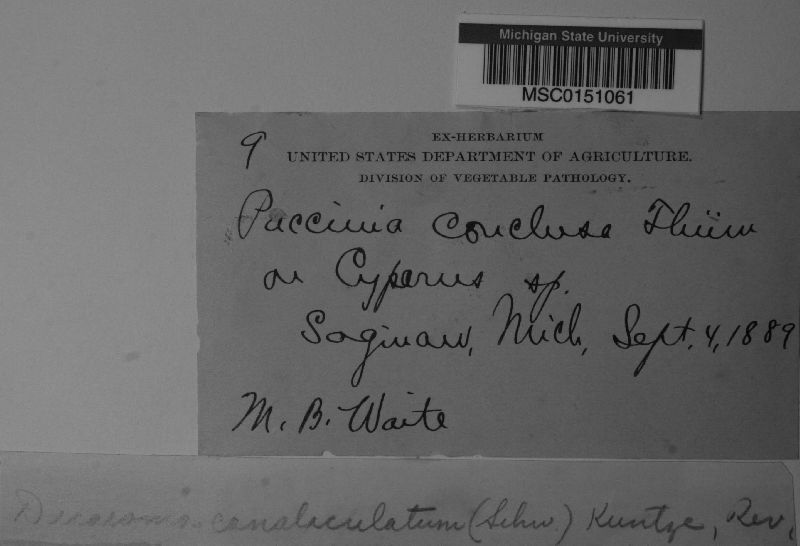 Michigan State University
MSC0151061
9
EX-HERBARIUM
UNITED STATES DEPARTMENT OF AGRICULTURE.
DIVISION OF VEGETABLE PATHOLOGY.
Puccinia conclusa Thüm
on Cyperus sp.
Saginaw, Mich, Sept. 4, 1889
M. B. Waite
canaliculatum (Schw.) Kuntze, Rev,